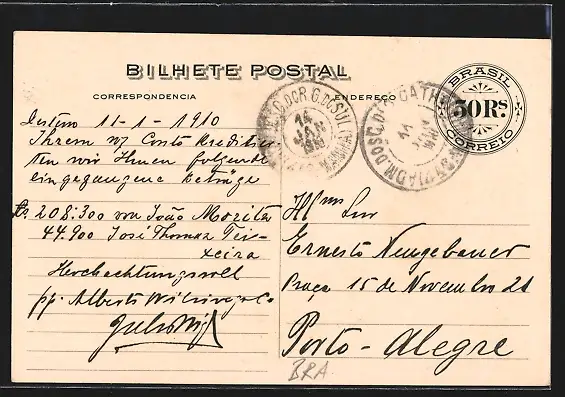 BILHETE POSTAL
CORRESPONDENCIA
ENDEREÇO
BRASIL
50 Rs.
CORREIO
Desterro 11-1-1910
Ihrem w/ Conto kreditier-
ten wir Ihnen folgende
eingegangene Beträge
Rs. 208.300 von João Moritz
44.900 José Thomaz Tei-
xeira
Hochachtungsvoll
pp. Alberto
14
JAN
11
Illmo Snr
Ernesto Neugebauer
Praça 15 de Novembro 21
Porto-Alegre
BRA